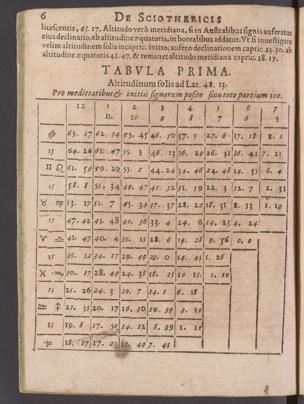 6 DE SCIOTHERICIS
litescentis, 65. 17. Altitudo verò meridiana, si in Australibus signis auferatur
eius declinatio ab altitudine æquatoris, in borealibus addatur. Vt si inuestigare
velim altitudinem solis in capric. initio, aufero declinationem capric. 23. 30. ab
altitudine æquatoris 41. 47. & remanet altitudo meridiana capric. 18. 17.
TABVLA PRIMA.
Altitudinum solis ad Lat. 48. 13.
Pro medietatibus & initiis signorum posito sinu toto partium 100.
12 1 2 3 4 5 6 7 8
11. 10 0 7 6 5
♋ 65. 17 62. 34 46. 50 37. 5 27. 6 17. 18 8. 0
15 64. 26 55. 3 46. 13 36. 20 26. 31 16. 41 7. 21
♊ ♌ 61. 59 59. 29 53. 2 44. 24 34. 46 24. 48 14. 55 6. 4
15 58. 8 49. 47 41. 32 31. 59 22. 3 12. 7 2. 33
♉ ♍ 53. 17 51. 7 45. 34 37. 37 28. 20 18. 31 8. 33 1. 10
15 47. 42 45. 48 40. 36 33. 4 24. 6 14. 23 4. 24
♈ ♎ 41. 47 40. 4 35. 15 28. 6 19. 28 9. 56 0. 0
15 35. 52 34. 17 29. 49 23. 0 14. 45 5. 26
♓ ♏ 30. 17 28. 49 24. 38 18. 15 10. 15 1. 10
15 25. 26 24. 3 20. 7 14. 1 6. 18
♒ ♐ 21. 35 20. 17 16. 30 10. 39 3. 10
15 19. 8 17. 50 14. 12 8. 39 1. 10
♑ 18. 17 49 7. 45